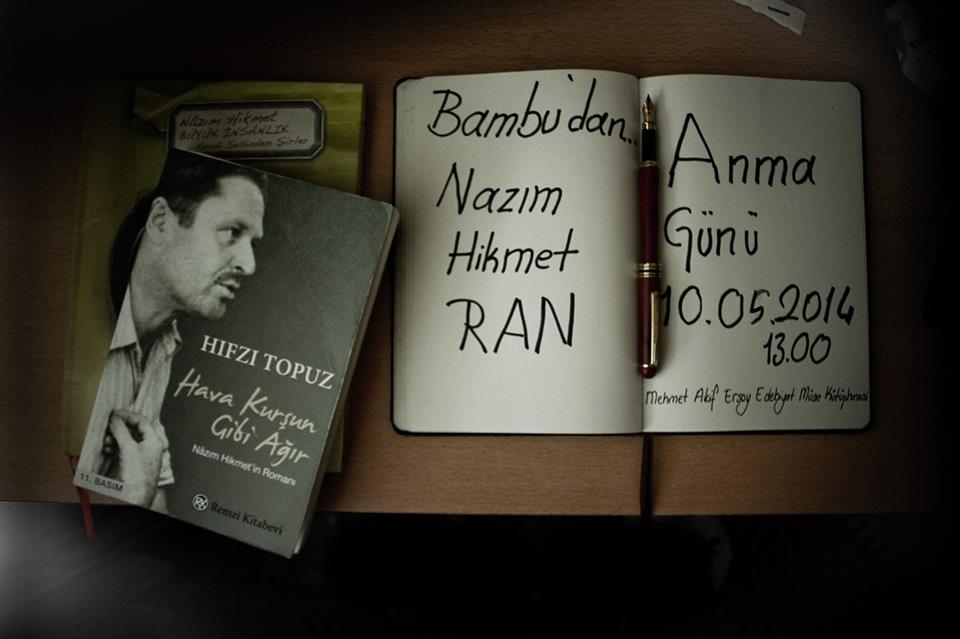 Nâzım Hikmet
BÜYÜK İNSANLIK
Kendi Sesinden Şiirler
HIFZI TOPUZ
Hava Kurşun
Gibi Ağır
Nâzım Hikmet'in Romanı
11. BASIM
RK Remzi Kitabevi
Bambu'dan...
Nazım
Hikmet
RAN
Anma
Günü
10.05.2014
13.00
Mehmet Akif Ersoy Edebiyat Müze Kütüphnesi